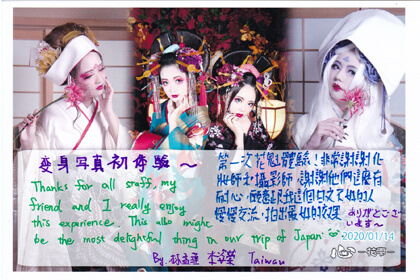 変身写真初体驗～
Thanks for all staff, my
friend and I really enjoy
this experience. This also might
be the most delightful thing in our trip of Japan.
By. Taiwan
第一次花魁體驗！非常謝謝化
妝師、攝影師，謝謝他們這麼有
耐心，願意跟我這個日文不好的人
慢慢交流，拍出最好的效果
ありがとうござ
います～
2020/01/14
心
花雫